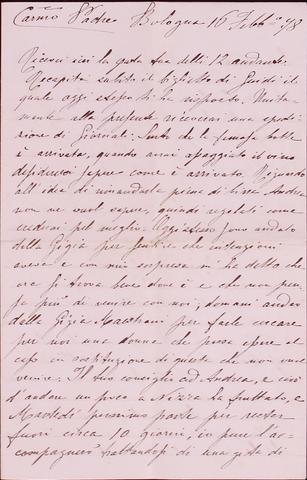 Car.mo Padre Bologna 16 Febb.o 78
Ricevei ieri la grata tua delli 12 andante.
Recapitai subito il biglietto di Guidi il
quale oggi stesso ti ha risposto. Unita
mente alla presente riceverai una spedi
zione di Giornali. La botte
è arrivata, quando avrai assaggiato il vino
desidererei sapere come è arrivato. Riguardo
all'idea di rimandarla prima di Andrea
non ne vuol sapere, quindi regolati come
crederai pel meglio. Oggi stesso sono andato
dalla Gigia per sentire che intenzioni
aveva e con mia sorpresa m'ha detto che
ora si trova bene dove è e che non pen
sa più di venire con noi; domani andrò
dalla Gigia per farle cercare
per noi una donna che possa essere al
caso in sostituzione di questa che non vuole
venire. Il tuo consiglio ad Andrea, e cioè
d'andare un poco a Nizza ha fruttato, e
Martedì prossimo parte per restar
fuori circa 10 giorni; io pure l'ac=
compagnerò trattandosi di una gita di